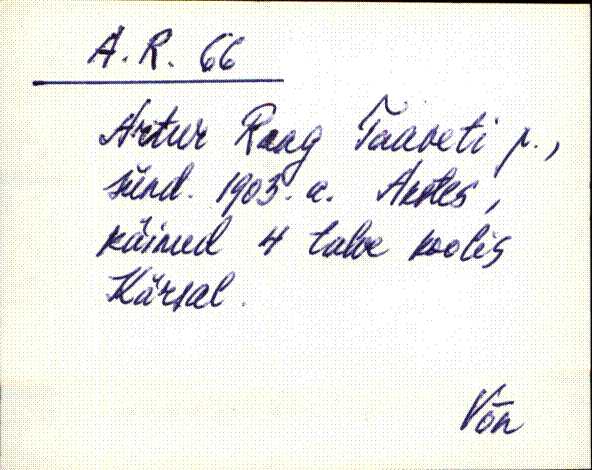 A. R. 66
Artur Raag Taaveti p.,
sünd. 1903. a. Akstes,
käinud 4 talve koolis
Kärsal.
Võn